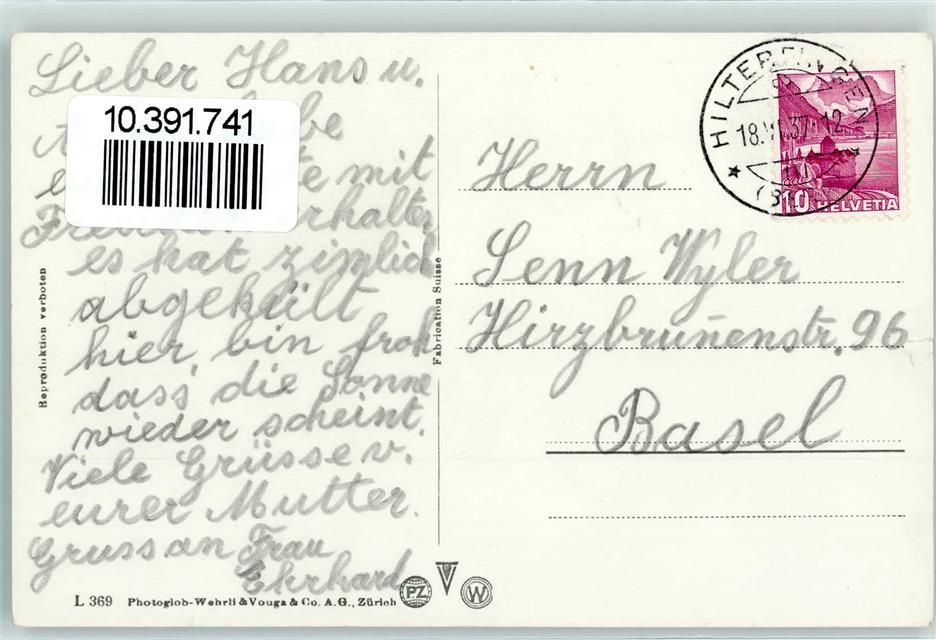 Lieber Hans u.
10.391.741
mit
erhalten,
es hat zimlich
abgekült
hier, bin froh
dass, die Sonne
wieder scheint.
Viele Grüsse v.
eurer Mutter.
Gruss an Frau
Ehrhard
Reproduktion verboten
Fabrication Suisse
L 369 Photoglob-Wehrli & Vouga & Co. A.G., Zürich
PZ
V
W
HILTERFINGEN
18.
37. 12
10 HELVETIA
Herrn
Senn Wyler
Hirzbrun̄enstr. 96
Basel